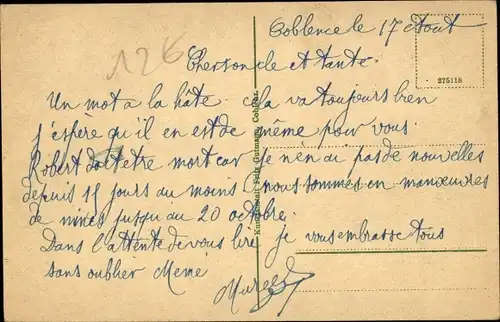 126
Coblence le 17 Aout
275118
Cher oncle et tante.
Un mot a la hâte. cela va toujours bien
j'espère qu'il en est de même pour vous.
Robert doit etre mort car je n'en ai pas de nouvelles
depuis 15 jours au moins nous sommes en manœuvres
de jusqu au 20 octobre.
Dans l'attente de vous lire je vous embrasse tous
sans oublier Mémé
Marcel
Kunstanstalt Fritz Gutmann, Coblenz.